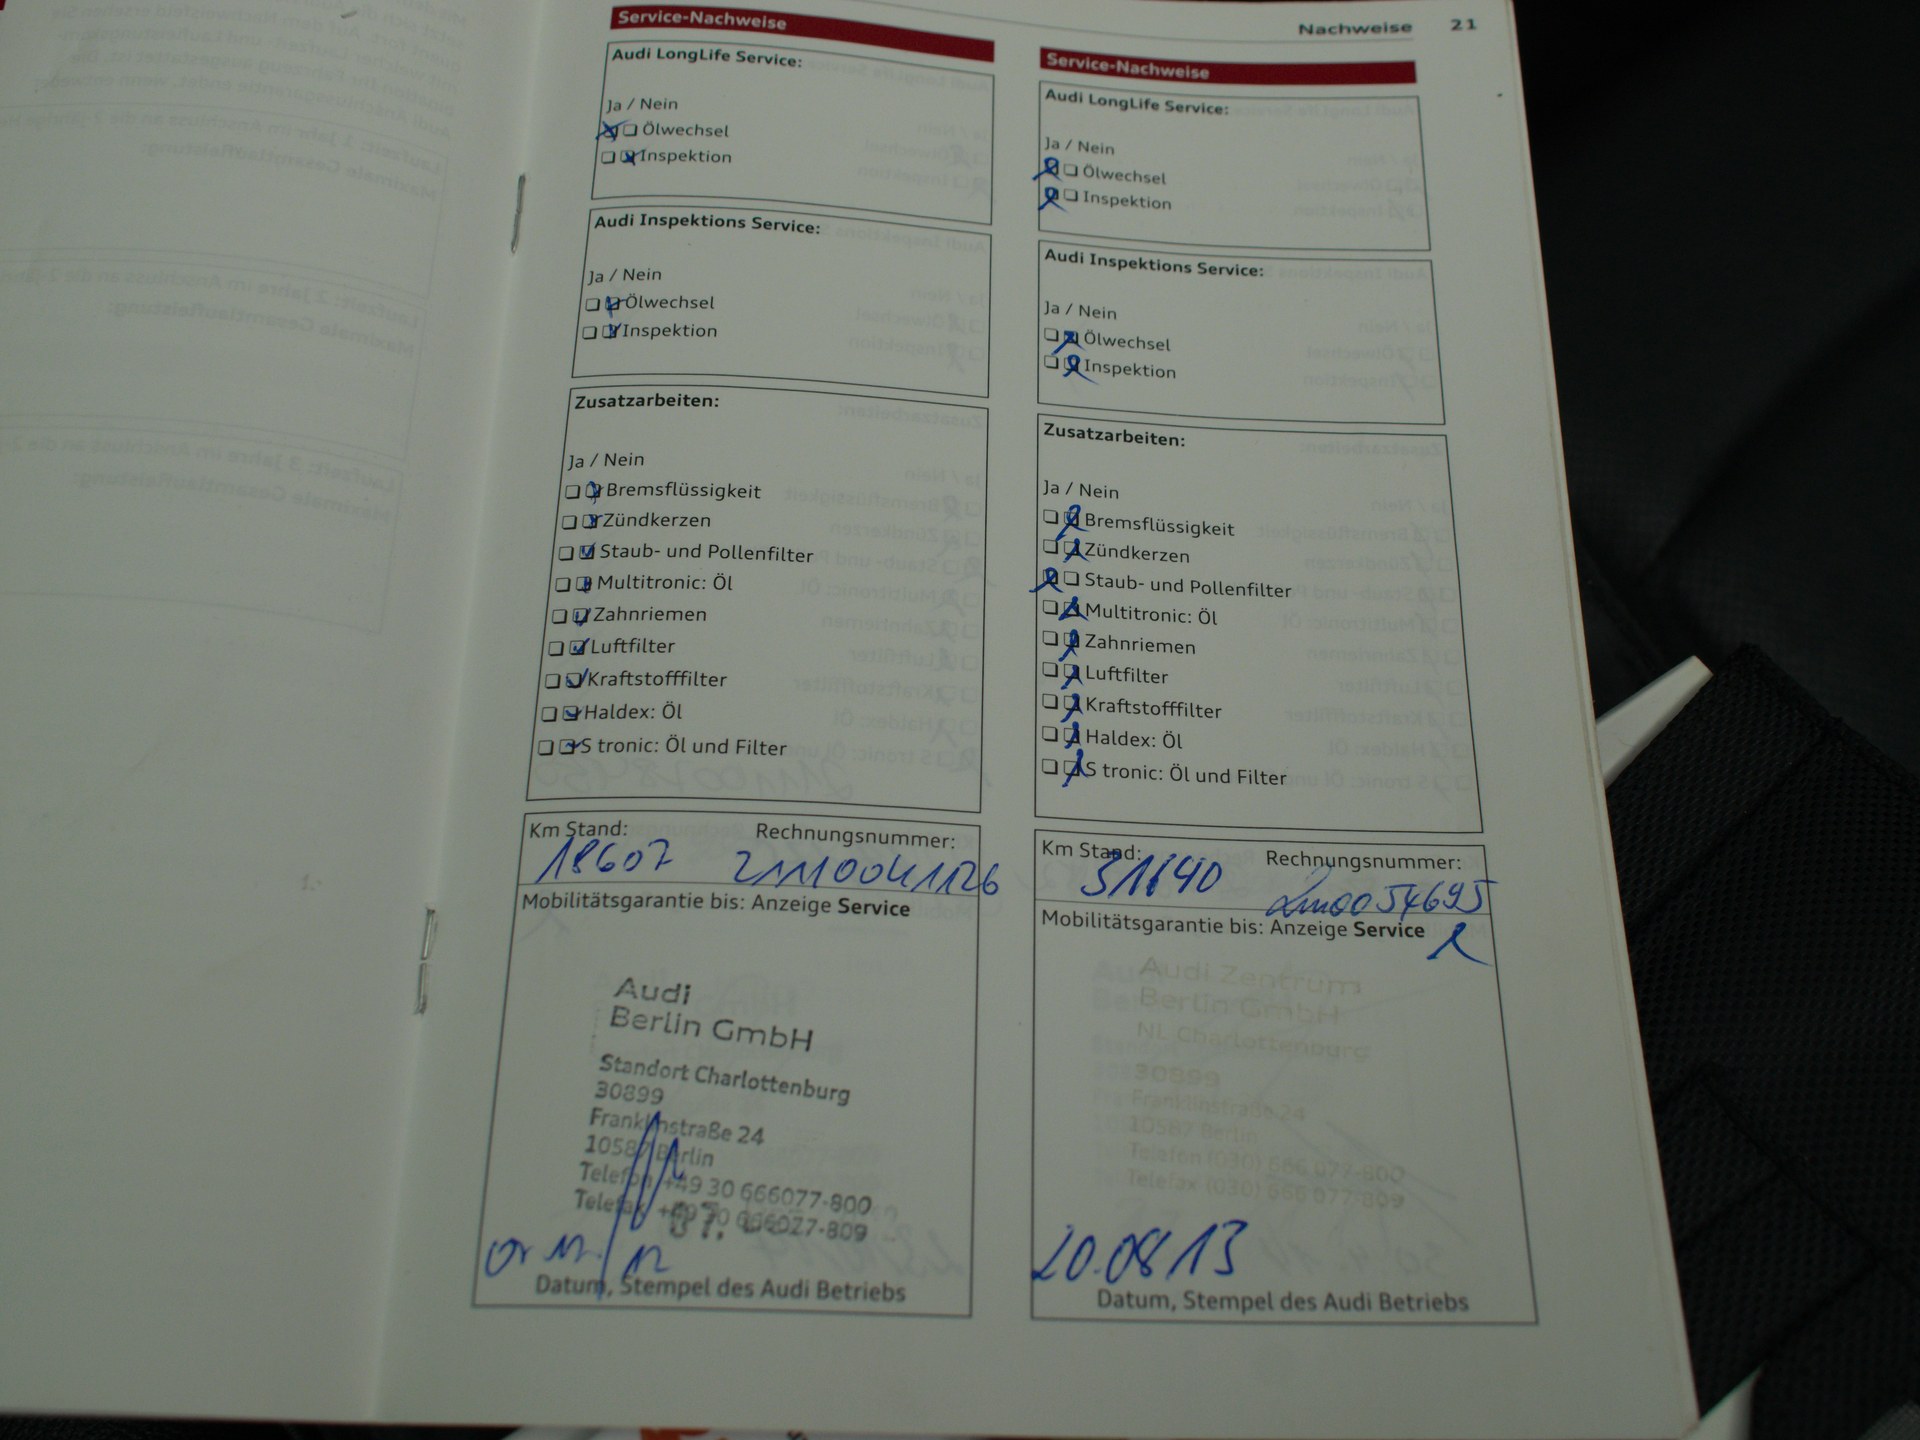 Nachweise 21
Service-Nachweise
Audi LongLife Service:
Ja / Nein
Ölwechsel
Inspektion
Audi Inspektions Service:
Ja / Nein
Ölwechsel
Inspektion
Zusatzarbeiten:
Ja / Nein
Bremsflüssigkeit
Zündkerzen
Staub- und Pollenfilter
Multitronic: Öl
Zahnriemen
Luftfilter
Kraftstofffilter
Haldex: Öl
S tronic: Öl und Filter
Km Stand: Rechnungsnummer:
18607
Mobilitätsgarantie bis: Anzeige Service
Audi
Berlin GmbH
Standort Charlottenburg
30899
Franklinstraße 24
10587 Berlin
Telefon +49 30 666077-800
Telefax +49 30 666077-809
Datum, Stempel des Audi Betriebs
Service-Nachweise
Audi LongLife Service:
Ja / Nein
Ölwechsel
Inspektion
Audi Inspektions Service:
Ja / Nein
Ölwechsel
Inspektion
Zusatzarbeiten:
Ja / Nein
Bremsflüssigkeit
Zündkerzen
Staub- und Pollenfilter
Multitronic: Öl
Zahnriemen
Luftfilter
Kraftstofffilter
Haldex: Öl
S tronic: Öl und Filter
Km Stand: Rechnungsnummer:
31640
Mobilitätsgarantie bis: Anzeige Service
Audi Zentrum
Berlin GmbH
NL Charlottenburg
30899
Franklinstraße 24
10587 Berlin
Telefon (030) 666 077-800
Telefax (030) 666 077-809
20.08.13
Datum, Stempel des Audi Betriebs